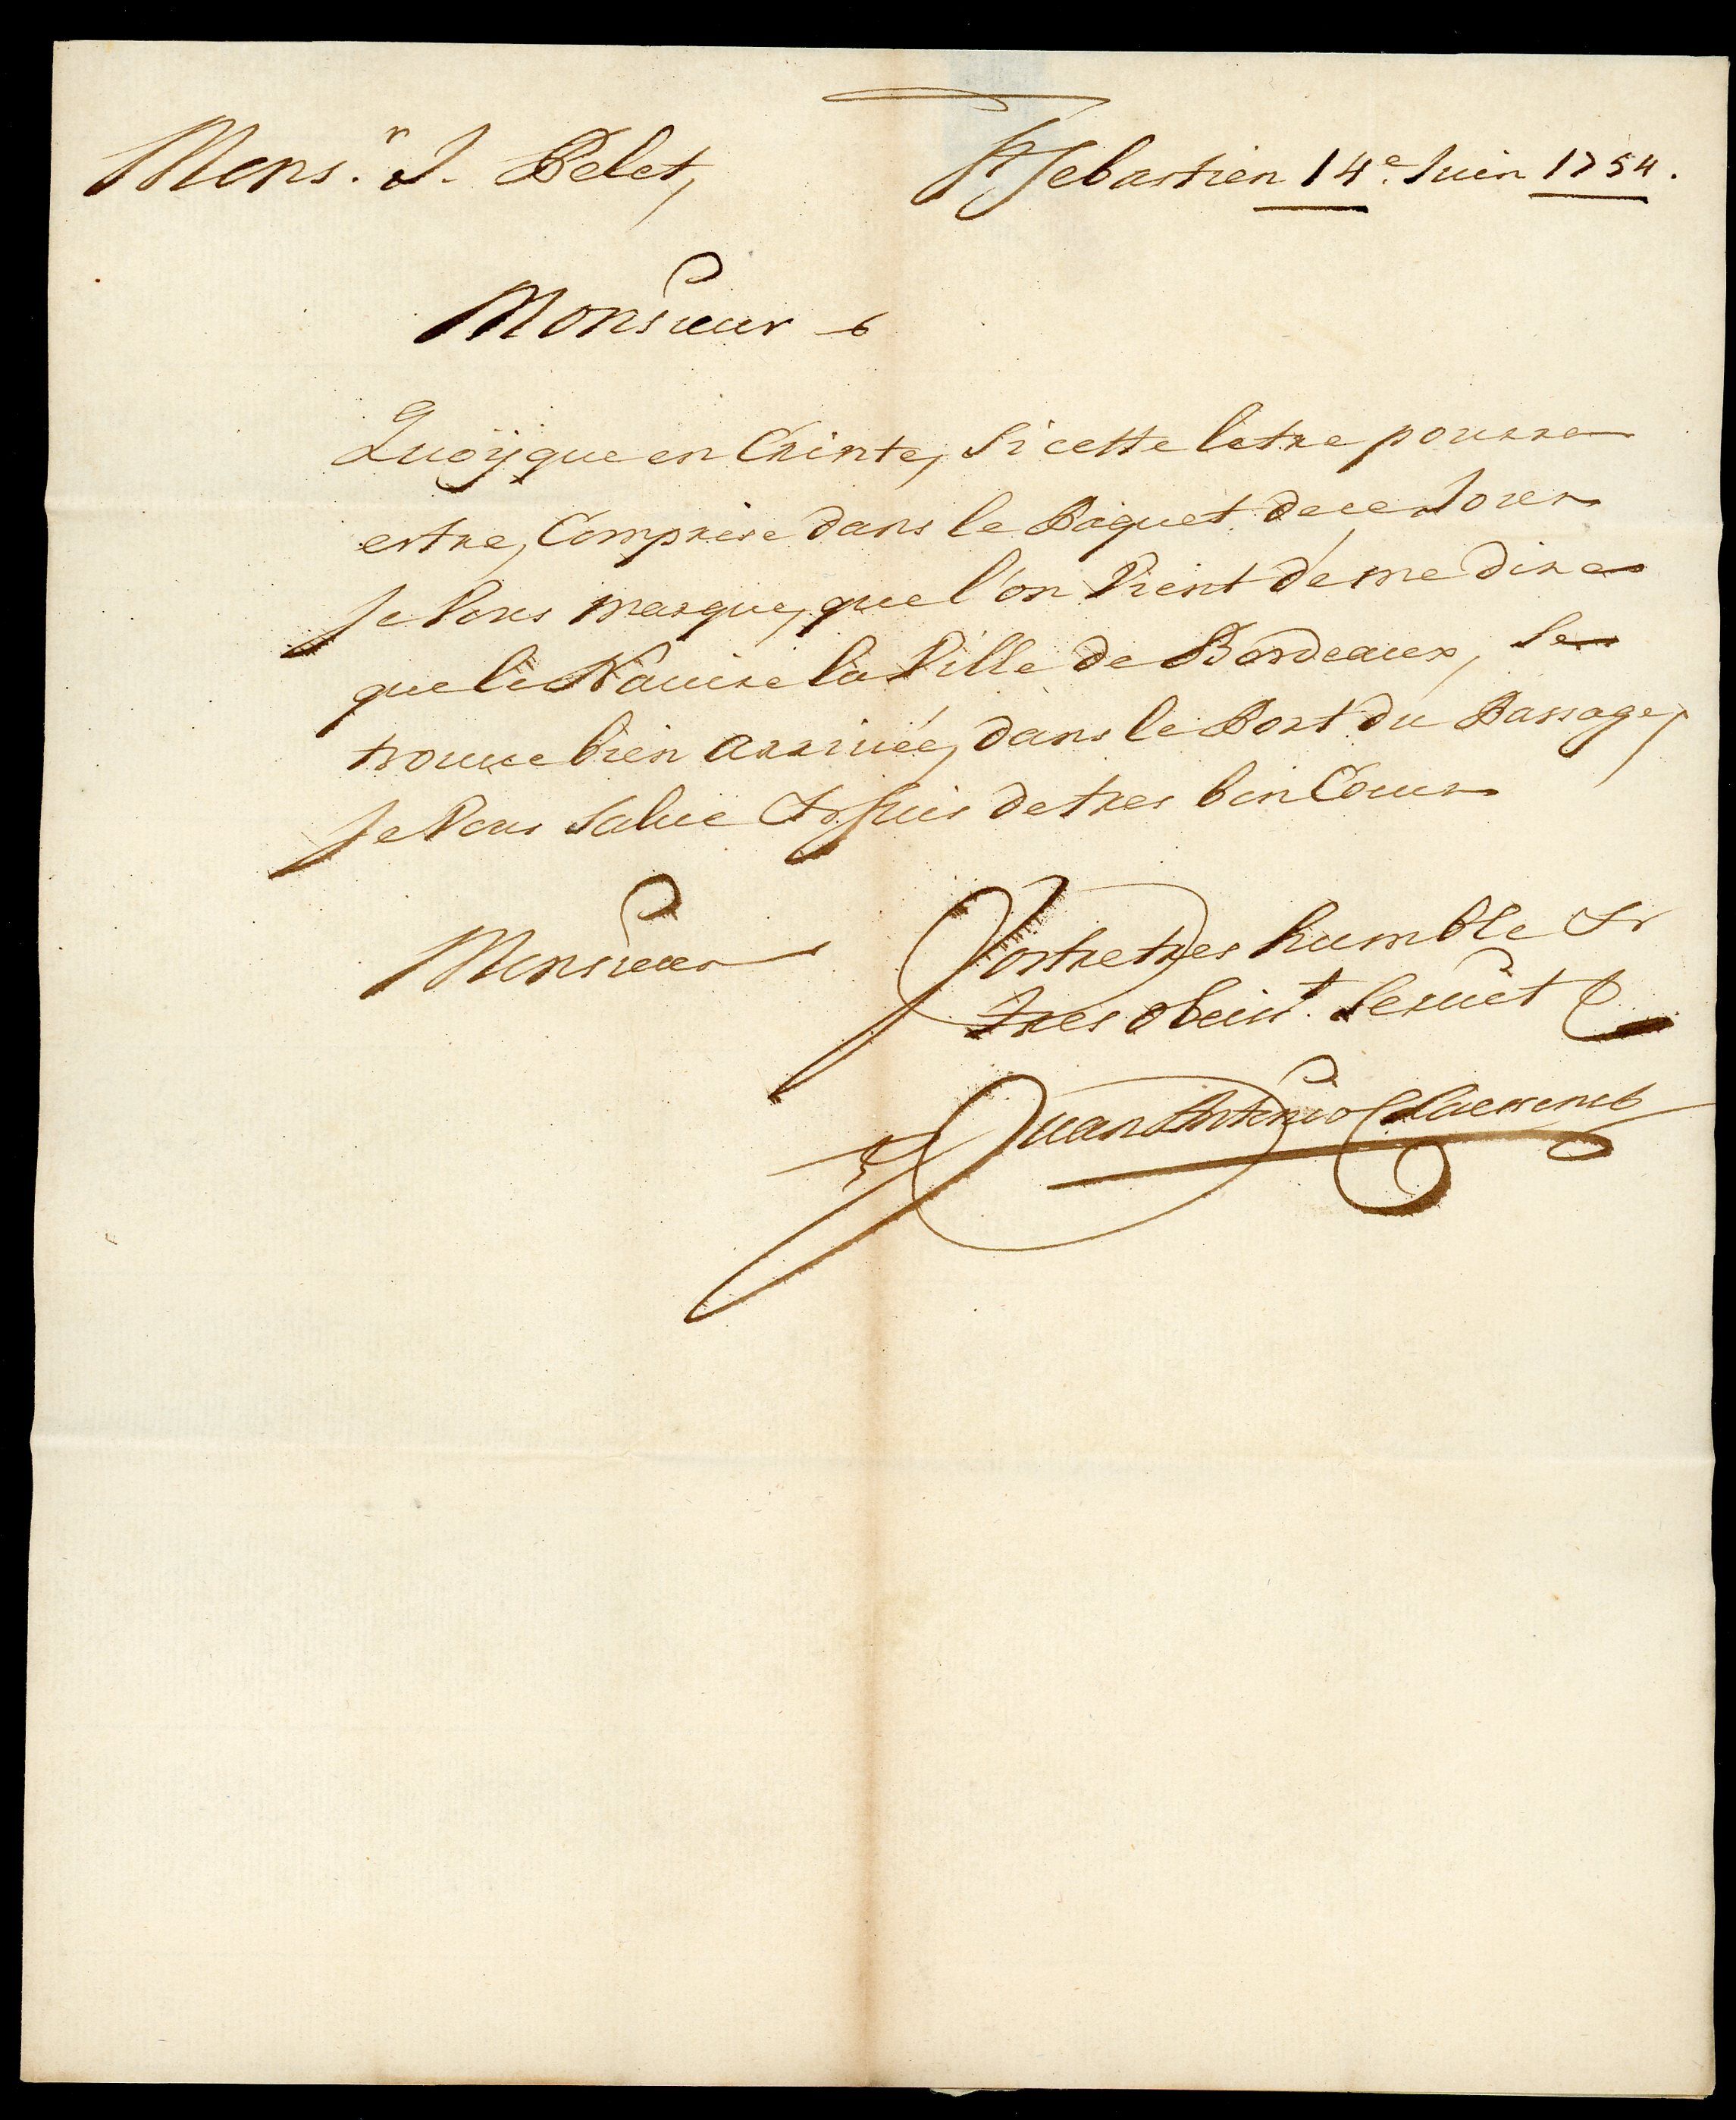 Mons.r J. Pelet, St Sebastien 14e. Juin 1754.
Monsieur
Quoÿque en Crinte, Si cette letre pourra
estre, Comprise dans le Paquet de ce Jour
Je Vous marque, que l'on Vient de me dire
que le Nauire la Ville de Bordeaux, Se
trouue bien arriuée, dans le Port du Passage,
Je Vous Salue & suis de tres bon Coeur
Monsieur Vostre tres humble &
tres obeist. Seruit
Juan Antonio Claessens